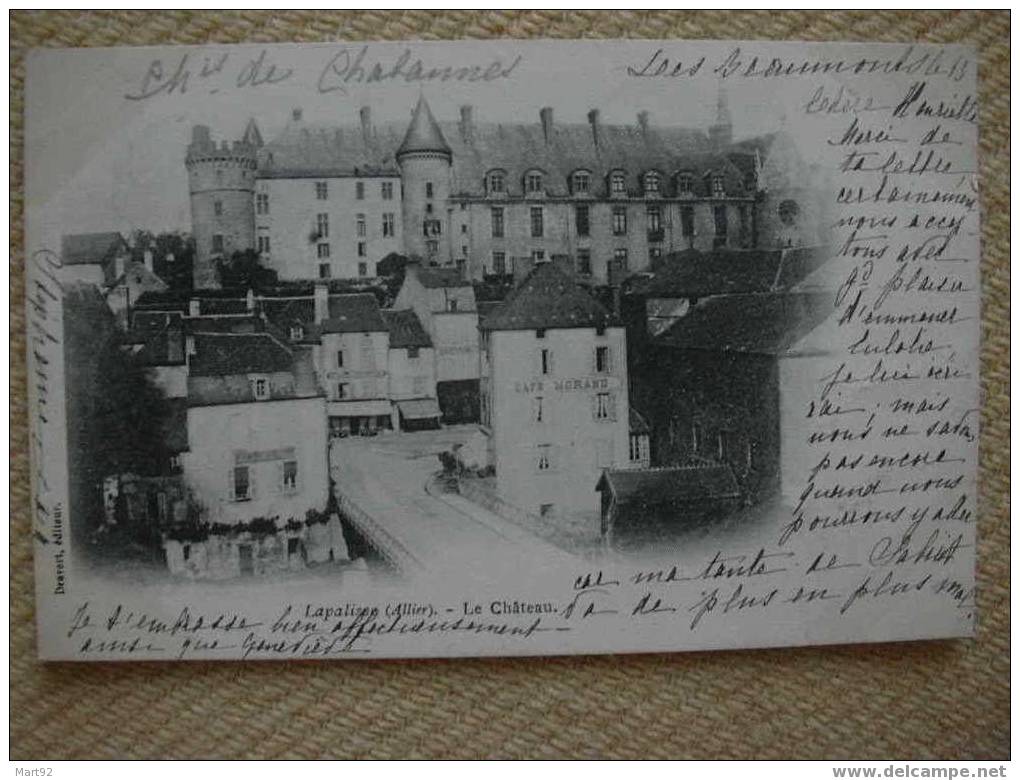 Chis. de Chabannes
Les Beaumonts le 13
chère Henriette
Merci de
ta lettre
certainement
nous accep
tons avec
gd plaisir
d'emmener
je lui écri
rai; mais
nous ne savons
pas encore
quand nous
pourrons y aller
car ma tante de
va de plus en plus mal
Je t'embrasse bien affectueusement
ainsi que Geneviève
Lapalisse (Allier). - Le Château.
Dravert, éditeur.
CAFE MORAND
Mart92
www.delcampe.net